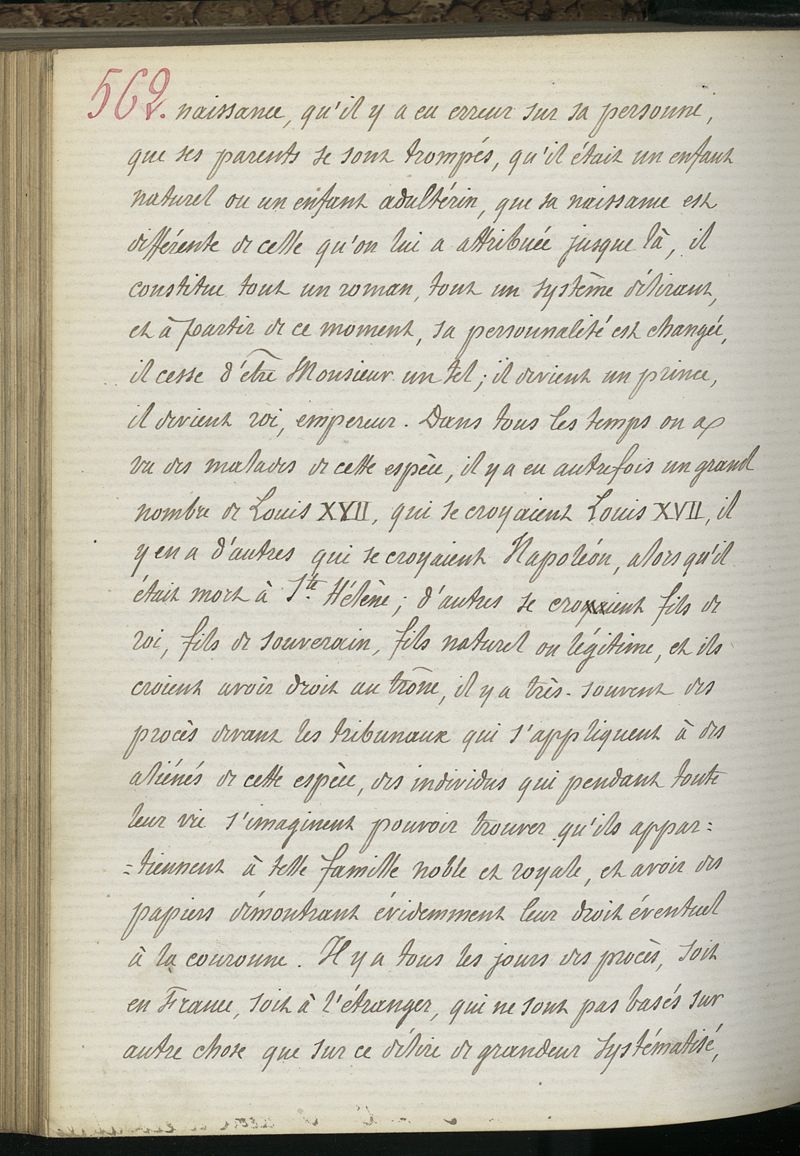 562. naissance, qu'il y a eu erreur sur sa personne,
que ses parents se sont trompés, qu'il était un enfant
naturel ou un enfant adultérin, que sa naissance est
différente de celle qu'on lui a attribuée jusque là, il
constitue tout un roman, tout un système délirant,
et à partir de ce moment, sa personnalité est changée,
il cesse d'être Monsieur un tel; il devient un prince,
il devient roi, empereur. Dans tous les temps on a
vu des malades de cette espèce, il y a eu autrefois un grand
nombre de Louis XVII, qui se croyaient Louis XVII, il
y en a d'autres qui se croyaient Napoléon, alors qu'il
était mort à Ste. Hélène; d'autres se croient fils de
roi, fils de souverain, fils naturel ou légitime, et ils
croient avoir droit au trône, il y a très-souvent des
procès devant les tribunaux qui s'appliquent à des
aliénés de cette espèce, des individus qui pendant toute
leur vie s'imaginent pouvoir trouver qu'ils appar=
=tiennent à telle famille noble et royale, et avoir des
papiers démontrant évidemment leur droit éventuel
à la couronne. Il y a tous les jours des procès, soit
en France, soit à l'étranger, qui ne sont pas basés sur
autre chose que sur ce délire de grandeur systématisé,